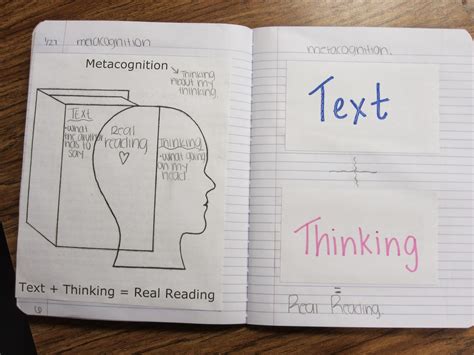 metacognition
Metacognition
Thinking
about my
thinking.
Text
-what
the author
has to
say
Real
reading
Thinking
-what going
on my
head
Text + Thinking = Real Reading
metacognition
Text
Thinking
=
Real Reading